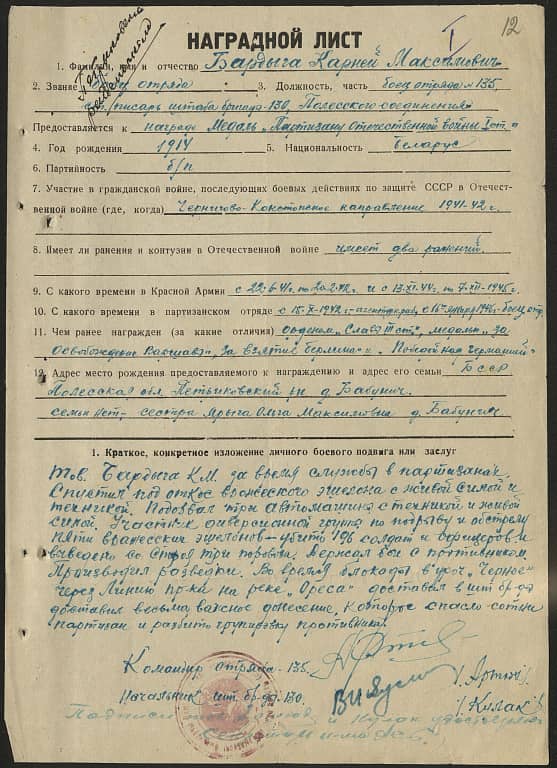 12
I
НАГРАДНОЙ ЛИСТ
1. Фамилия, имя и отчество Бардыга Карней Максимович
2. Звание боец отряда 3. Должность, часть боец отряда 135,
писарь штаба бригады-130, Полесского соединения
Представляется к награде Медаль „Партизану Отечественной войны I ст."
4. Год рождения 1914 5. Национальность беларус
6. Партийность б/п
7. Участие в гражданской войне, последующих боевых действиях по защите СССР в Отечест-
венной войне (где, когда) Чернигово-Конотопское направление 1941-42 г.
8. Имеет ли ранения и контузии в Отечественной войне имеет два ранения.
9. С какого времени в Красной Армии с 22-6-41г. по 20.2.42г. и с 13-XI-44г. по 7-XII-1945г.
10. С какого времени в партизанском отряде с 15-X-1942г. боец отр.
11. Чем ранее награжден (за какие отличия) орденом „Слава III ст", медаль „за
освобождение Варшавы" „За взятие Берлина" и „Победа над Германией"
12. Адрес место рождения предоставляемого к награждению и адрес его семьи БССР
Полесская обл. Петриковский р-н д. Бабуничи.
семьи нет- сестра Ярыга Ольга Максимовна д. Бабуничи
1. Краткое, конкретное изложение личного боевого подвига или заслуг
Тов. Бардыга К.М. за время службы в партизанах
Спустил под откос 2 вражеского эшелона с живой силой и
техникой. Подозвал три автомашины с техникой и живой
силой. Участник диверсионной группы по подрыву и обстрелу
пяти вражеских эшелонов - убито 196 солдат и офицеров и
выведено со строя три паровоза. Держал бои с противником.
Производил разведки. Во время блокады в уроч. „Черное"
через Линию пр-ка на реке „Ореса" доставил в шт. бр-ды
доставил весьма важное донесение, которое спасло сотни
партизан и разбить групировку противника.
Командир отряда-135
Начальник шт. бр-ды-130.
/Кулак/
Подписи и Кулак удостоверяю